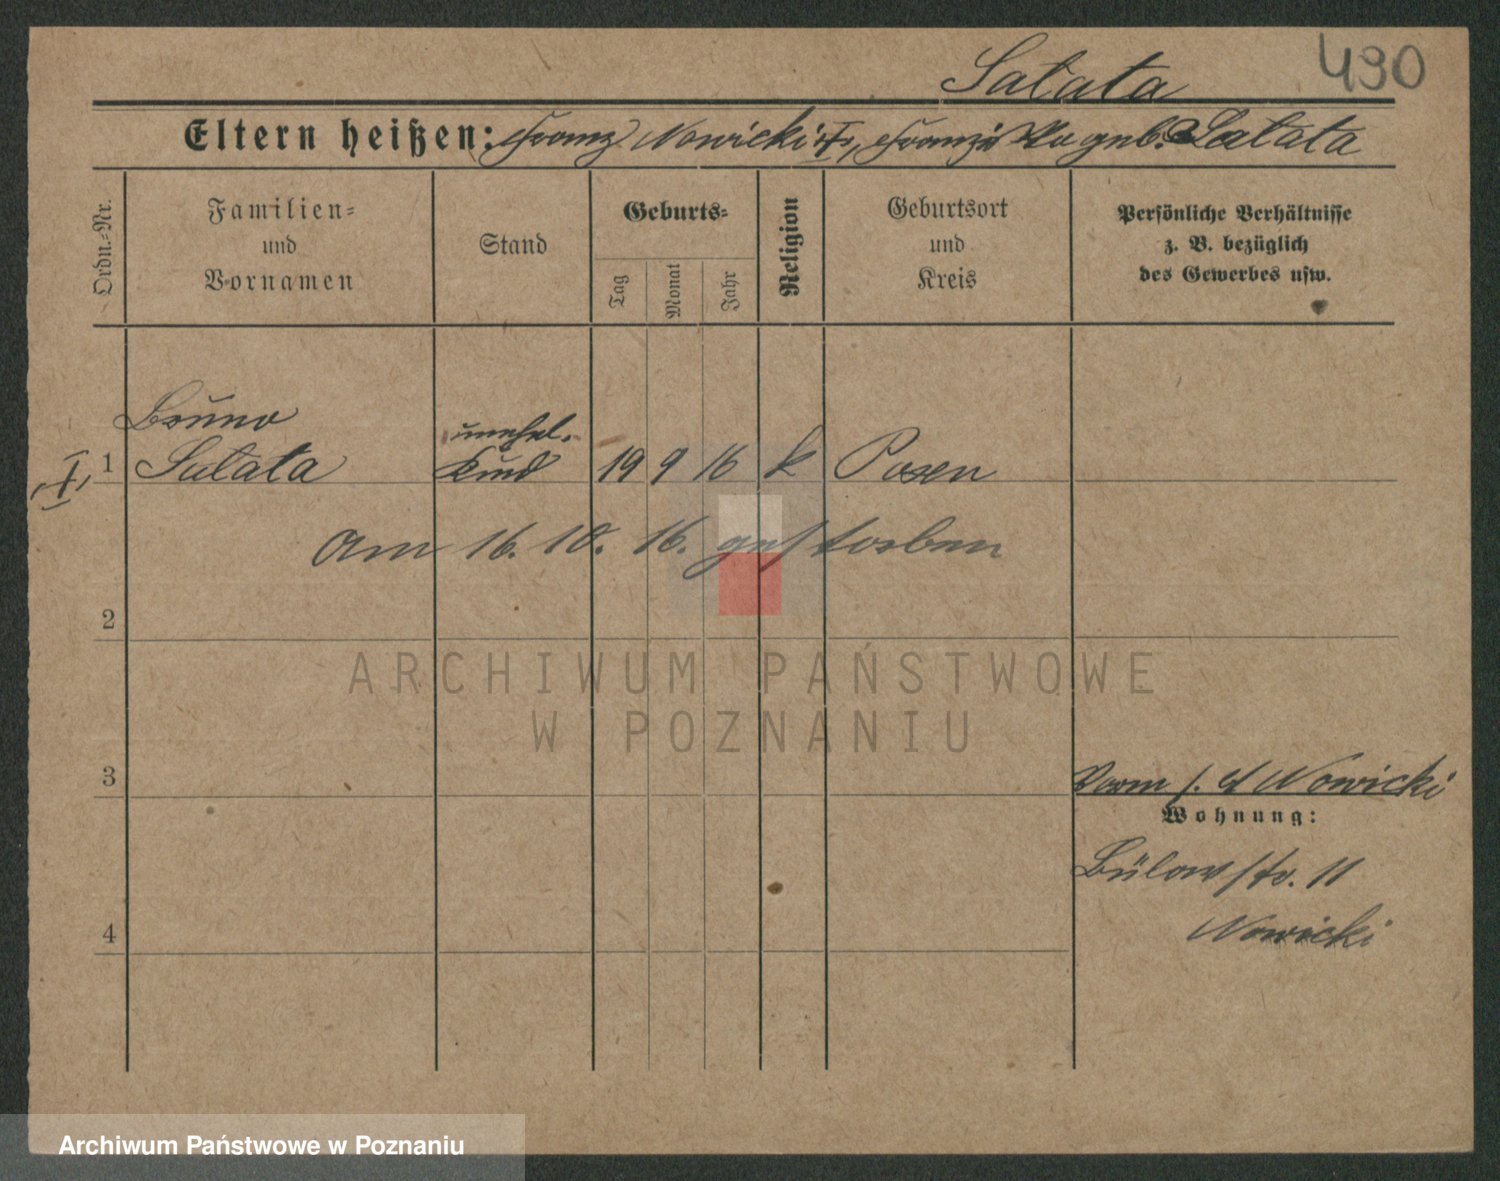 490
Salata
Eltern heißen: Franz Nowicki †, Franziska geb. Salata
Ordn.-Nr.
Familien-
und
Vornamen
Stand
Geburts-
Tag
Monat
Jahr
Religion
Geburtsort
und
Kreis
Persönliche Verhältnisse
z. B. bezüglich
des Gewerbes usw.
Bruno
unehel.
† 1 Salata Kind 19 9 16 k Posen
am 16. 10. 16. gestorben
2
ARCHIWUM PAŃSTWOWE
W POZNANIU
3
Vorm s. Nowicki
Wohnung:
Bülowstr. 11
4
Nowicki
Archiwum Państwowe w Poznaniu